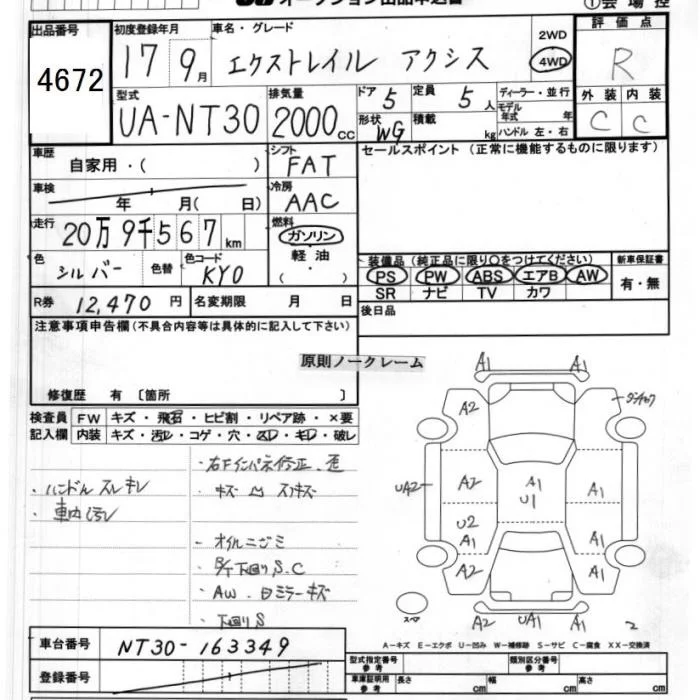 オークション出品申込書
①会場控
出品番号
4672
初度登録年月
17 9月
車名・グレード
エクストレイル アクシス
2WD
4WD
評価点
R
外装 内装
C C
型式
UA-NT30
排気量
2000cc
ドア 5
定員 5人
形状 WG
積載 kg
ディーラー・並行
モデル年式 年
ハンドル 左・右
車歴
自家用・( )
シフト
FAT
セールスポイント(正常に機能するものに限ります)
車検
年 月( 日)
冷房
AAC
走行
20万9千567km
燃料
ガソリン
軽油
( )
色
シルバー
色替
色コード
KYO
装備品(純正品に限り○をつけてください)
新車保証書
PS PW ABS エアB AW
SR ナビ TV カワ
有・無
R券 12,470円
名変期限 月 日
後日品
注意事項申告欄(不具合内容等は具体的に記入して下さい)
修復歴 有〔箇所 〕
原則ノークレーム
検査員記入欄
FW キズ・飛石・ヒビ割・リペア跡・×要
内装 キズ・汚レ・コゲ・穴・スレ・キレ・破レ
・ハンドルスレキレ
・車内汚レ
・右Fインパネ修正、歪
・オイルニジミ
・下廻りS
A1 A1
A2
UA2
A2 A1 U1 A1
U2
A1 A1
A2 A2
スペア
A2 UA1 A1
2
A-キズ E-エクボ U-凹み W-補修跡 S-サビ C-腐食 XX-交換済
車台番号
NT30-163349
登録番号
型式指定番号 参考
類別区分番号 参考
車庫証明用 参考
長さ cm
幅 cm
高さ cm